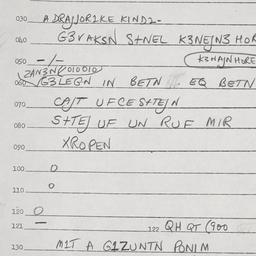 030 A DRAJJOR1KE KIND2-
040 G3VAKSN S+NEL K3NEJN3 HOR
050 -/- K3HAJN HORE
ZAN3N(010010
060 G3LEGN IN BETN EQ BETN
070 CAJT UFCES+EJN
080 S+TEJ UF UN RUF MIR
090 XROPEN
100 O
110 O
120 O
121 — 122 QH QT (900
130 M1T A G1ZUNTN PONIM